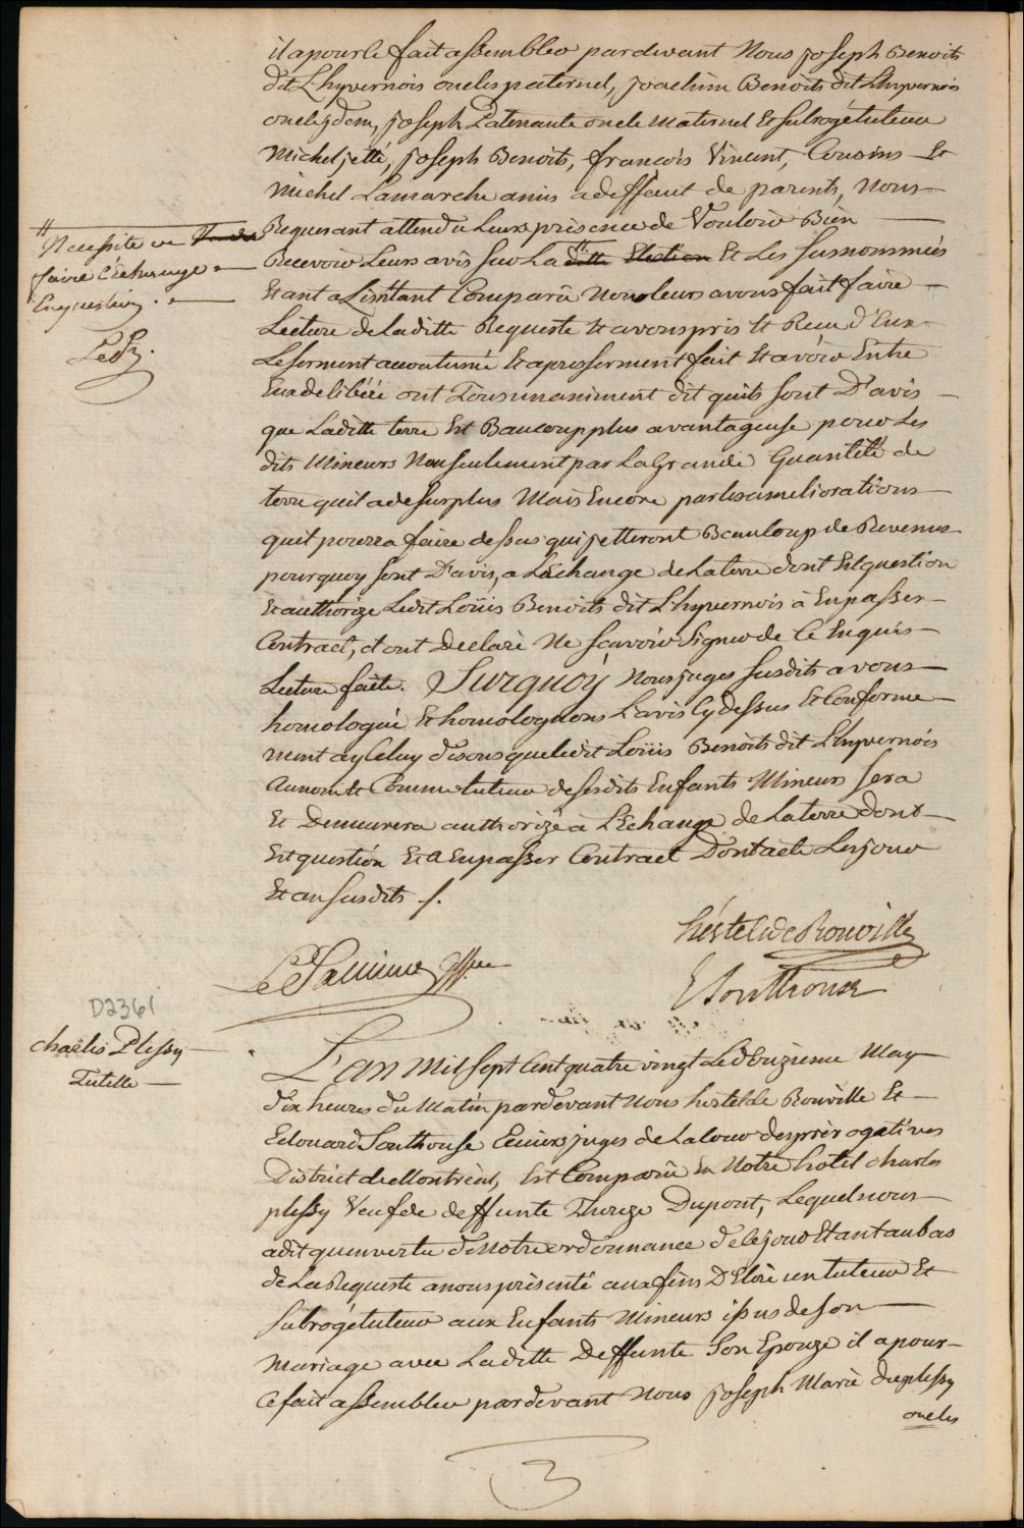 il a pour le fait assembleo pardevant Nous joseph Benoits
dit Lhyvernois oncles paternel, joachim Benoits dit Lhyvernois
oncle jdem, joseph Patenaute oncle Maternel Et subrogé tuteur
Michel jetté, joseph Benoits, francois Vincent, Cousins Et
Michel Lamarche amis adeffaut de parents, Nous
# Necessité ou
faire l'Echange
En question
Requerant attendu Leurs presence de Vouloir Bien
Recevoir Leurs avis sur La # ditte Election Et Les susnommées
Etant a Linstant Comparû Nous leurs avons fait faire
Lecture de laditte Requeste Et avons pris Et Receu d'Eux
Le serment accoutumé Et apres serment fait Et avoir Entre
Eux delibéré ont Tous unaniment dit quils sont D'avis
que Laditte terre Est Baucoup plus avantageuse pour Les
dits Mineurs Non seulement par La Grande Quantité de
terre quil a de surplus Mais Encore par les ameliorations
quil pourra faire dessus qui jetteront Beaucoup de Revenus
pourquoy sont D'avis, a L'Echange de La terre dont Est question
Et authorize Ledit Loüis Benoits dit Lhyvernois à En passer
Contract, et ont Declaré Ne scavoir Signer de Ce Enquis
Lecture faite. Surquoy Nous juges susdits avons
homologué Et homologuons L'avis Cy dessus Et Conforme
ment ay Celuy disons que ledit Loüis Benoits dit Lhyvernois
Au nom Et Comme tuteur de sesdits Enfants Mineurs sera
Et Demeurera authorizé à L'Echange de La terre dont
Est question Et a En passer Contract Dont acte Les jour
Et an susdits ./.
hertel de Rouville
E Southouse
D2361
charles Plessy
Tutelle
L'an Mil Sept Cent quatre vingt Le douzieme May
dix heures du Matin pardevant Nous hertel de Rouville Et
Edouard Southouse Ecuiers juges de La Cour des prérogatives
District de Montréal, Est Comparû En Notre hôtel charles
plessy Veuf de deffunte Thereze Dupont, Lequel nous
a dit qu'en vertu de Notre ordonnance de ce jour Etant au bas
de La Requeste a nous présenté aux fins D'Elire un tuteur Et
subrogé tuteur aux Enfants Mineurs issus de son
Mariage avec Laditte Deffunte Son Epouze il a pour
Ce fait assembleo pardevant Nous joseph Marie duplessy
oncles
3